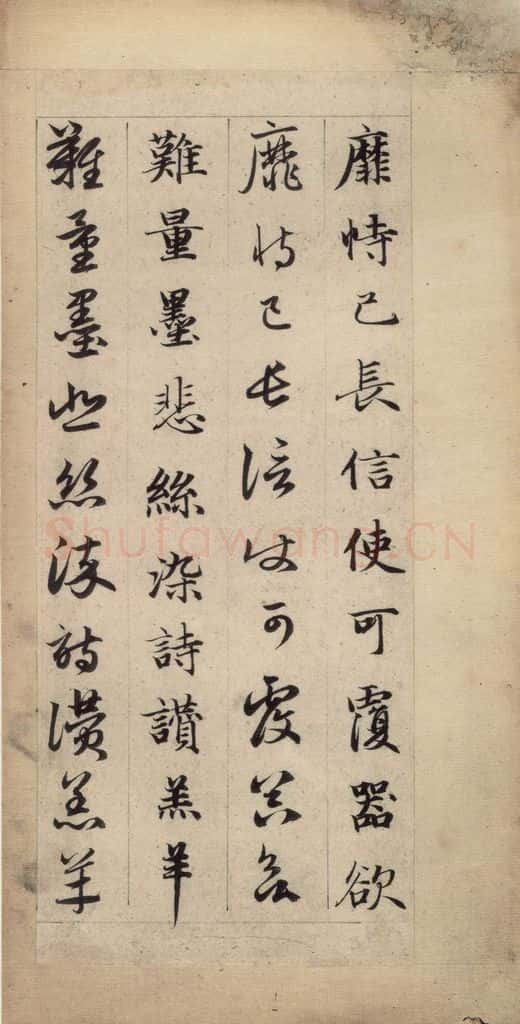 靡恃己長信使可覆器欲
靡恃己長信使可覆器欲
難量墨悲絲染詩讚羔羊
難量墨悲絲染詩讚羔羊
Shufawang.CN